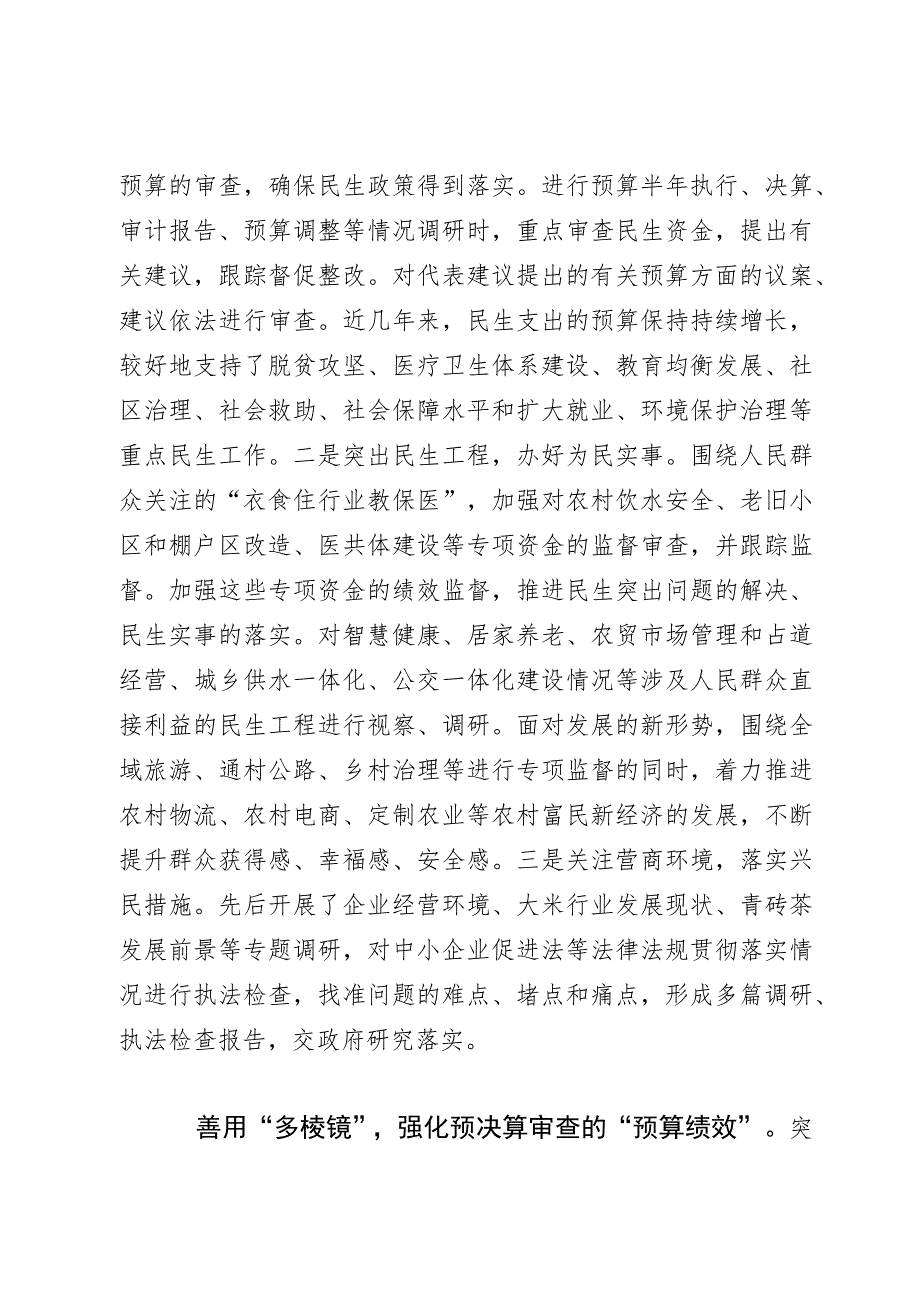 预算的审查，确保民生政策得到落实。进行预算半年执行、决算、
审计报告、预算调整等情况调研时，重点审查民生资金，提出有
关建议，跟踪督促整改。对代表建议提出的有关预算方面的议案、
建议依法进行审查。近几年来，民生支出的预算保持持续增长，
较好地支持了脱贫攻坚、医疗卫生体系建设、教育均衡发展、社
区治理、社会救助、社会保障水平和扩大就业、环境保护治理等
重点民生工作。二是突出民生工程，办好为民实事。围绕人民群
众关注的“衣食住行业教保医”，加强对农村饮水安全、老旧小
区和棚户区改造、医共体建设等专项资金的监督审查，并跟踪监
督。加强这些专项资金的绩效监督，推进民生突出问题的解决、
民生实事的落实。对智慧健康、居家养老、农贸市场管理和占道
经营、城乡供水一体化、公交一体化建设情况等涉及人民群众直
接利益的民生工程进行视察、调研。面对发展的新形势，围绕全
域旅游、通村公路、乡村治理等进行专项监督的同时，着力推进
农村物流、农村电商、定制农业等农村富民新经济的发展，不断
提升群众获得感、幸福感、安全感。三是关注营商环境，落实兴
民措施。先后开展了企业经营环境、大米行业发展现状、青砖茶
发展前景等专题调研，对中小企业促进法等法律法规贯彻落实情
况进行执法检查，找准问题的难点、堵点和痛点，形成多篇调研、
执法检查报告，交政府研究落实。
善用“多棱镜”，强化预决算审查的“预算绩效”。突